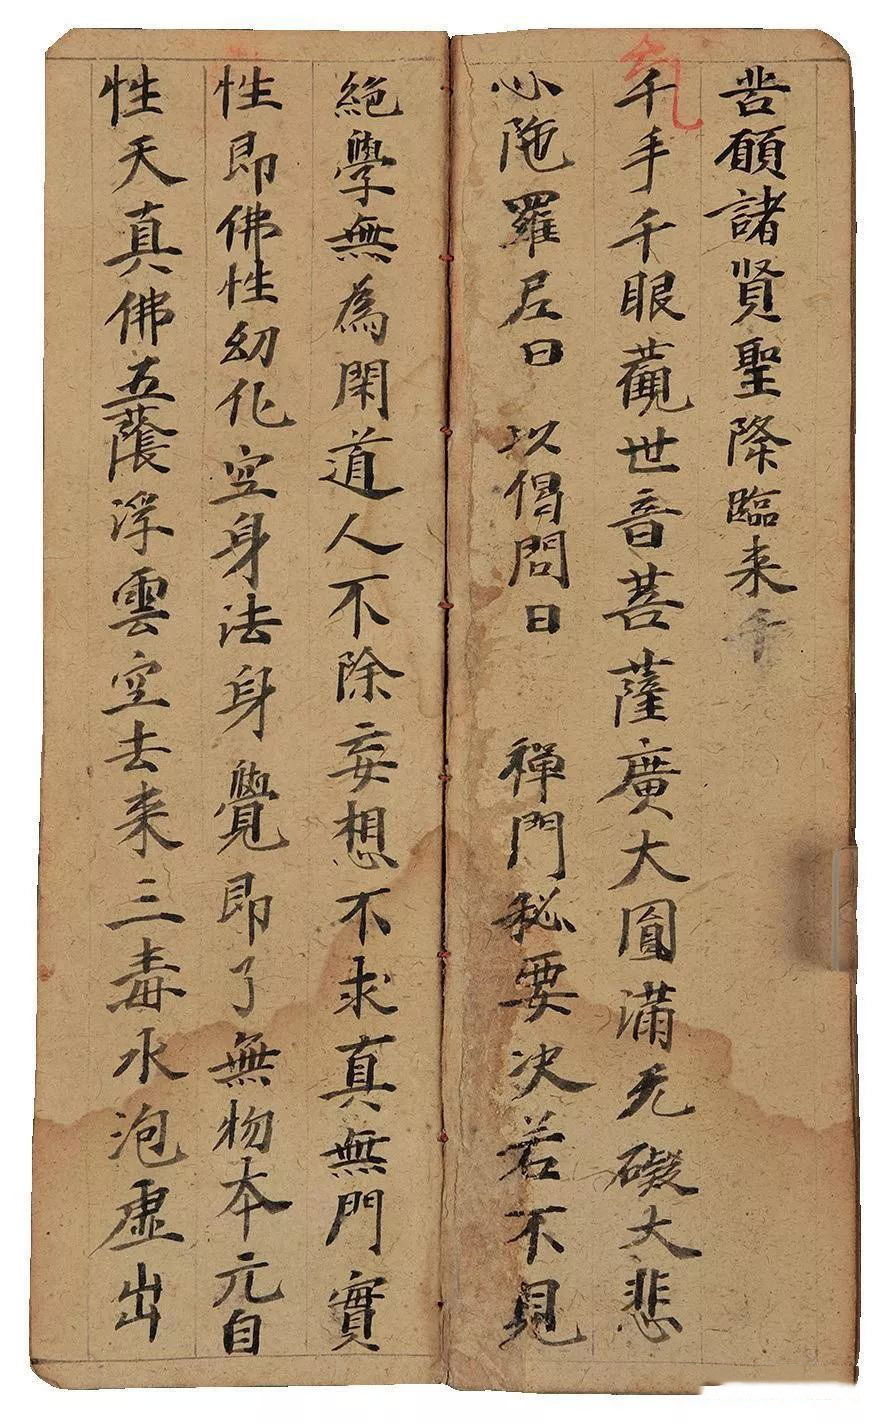 普願諸賢聖降臨来千
千手千眼觀世音菩薩廣大圓滿无礙大悲
心陁羅尼曰 以偈問曰 禪門秘要决若不見
絶學無為閑道人不除妄想不求真無門實
性即佛性幻化空身法身覺即了無物本元自
性天真佛五蔭浮雲空去来三毒水泡虛出